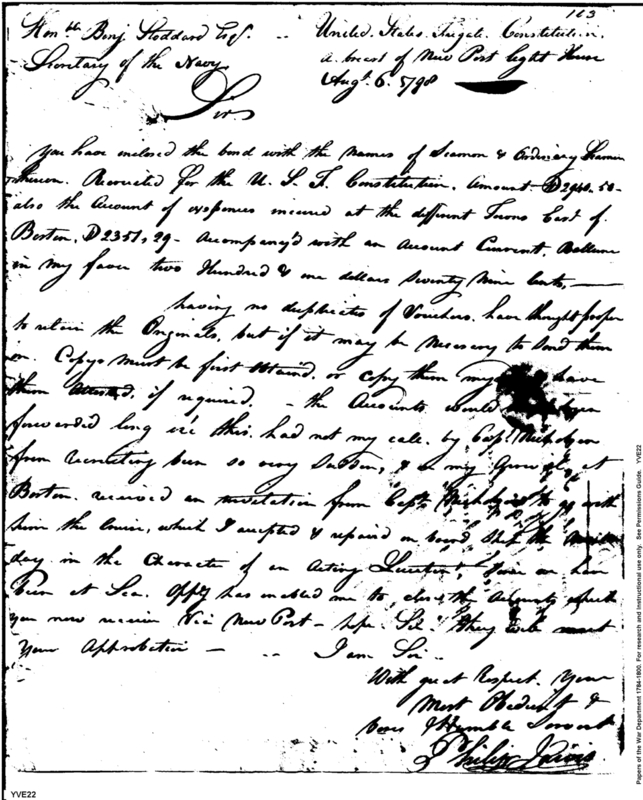 163
Honble Benj Stoddard Esqr. -- United States Frigate Constitution.
Secretary of the Navy a breast of New Port light House
Augt 6. 1798
Sir
You have enclosed the bond with the names of Seamen & Ordinary Seamen
thereon. Recruited for the U. S. F. Constitution. Amount D2940.50-
also the Account of expences incured at the different Towns East of
Boston. D2351,29- Accompany'd with an Account Current, Ballance
in my favor two Hundred & one dollars Seventy Nine Cents,—
having no duplicates of Vouchers. have thought proper
to retain the Originals, but if it may be Necessary to Send them
on. Copys must be first Attain'd. or copy them my have
them Attested, if required. - the Accounts would been
forwarded long ere this. had not my call. by Capt. Nicholson
from recruiting been so very Sudden, & on my at
Boston. received an invitation from Capt. Nicholson to go with
him the Cruise, which I accepted & repaired on board the
day. in the Character of an Acting Lieutent. have
been at Sea. has enabled me to close the Accounts which
you now receive Via New Port - hope Sir they will meet
Your Approbation — -- I am Sir -
With great Respect. Your
Most Obedient &
Very Humble Servant
Philip Jarvis
Papers of the War Department 1784-1800. For research and instructional use only. See Permissions Guide. YVE22
YVE22